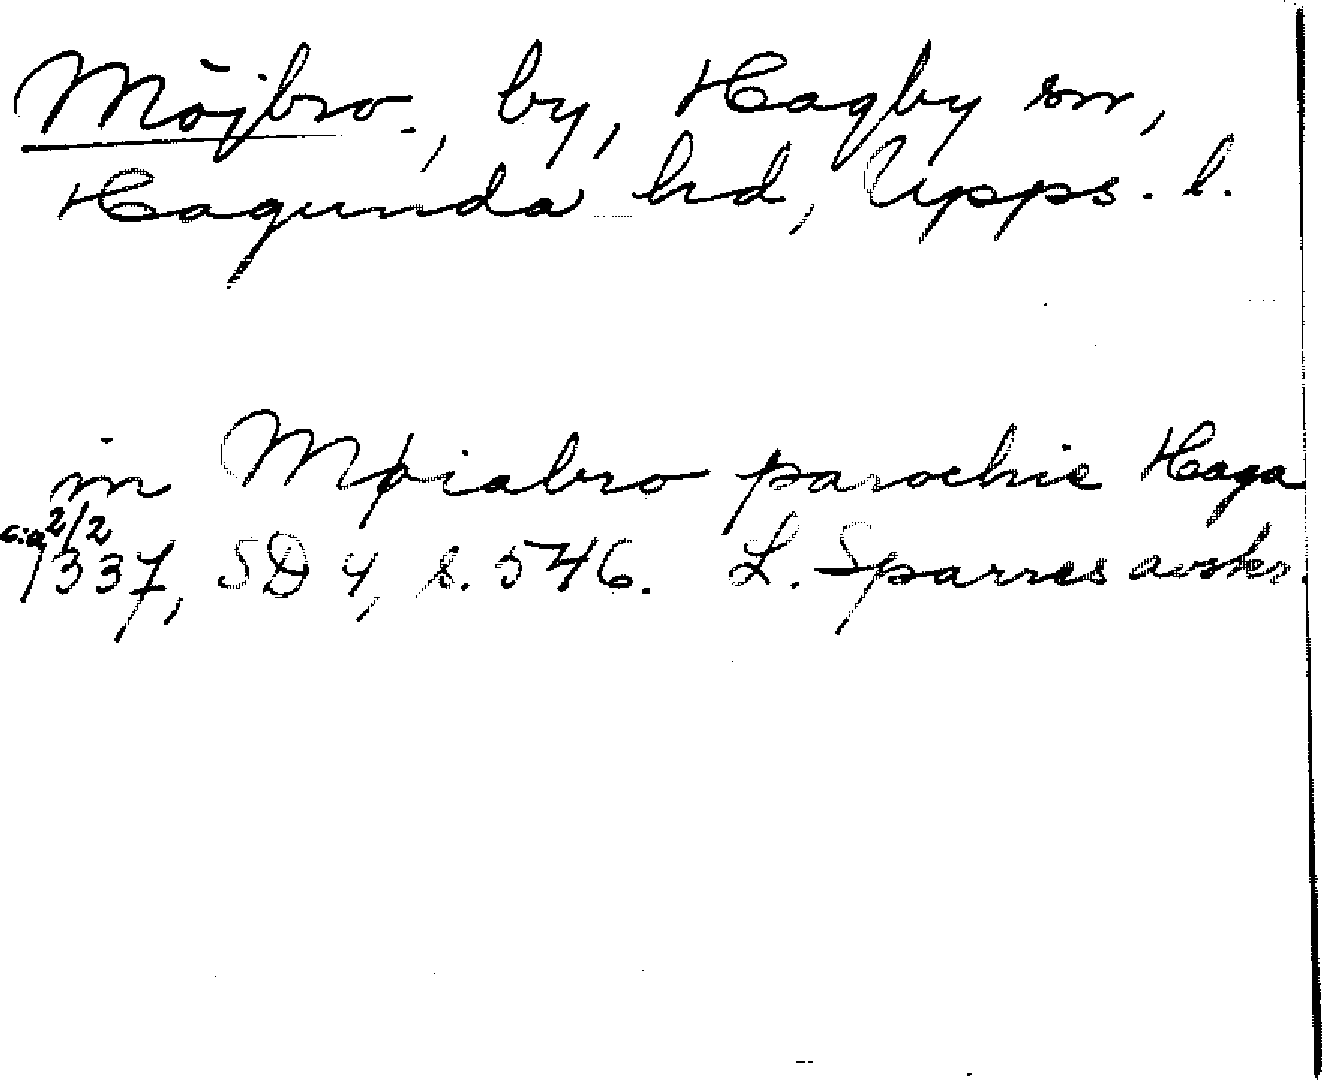 Möjbro., by, Hagby sn,
Hagunda hd, Upps. l.
in Møiabro parochie Haga
c:a 2/2
1337, SD 4, s. 546. L. Sparres avskr.